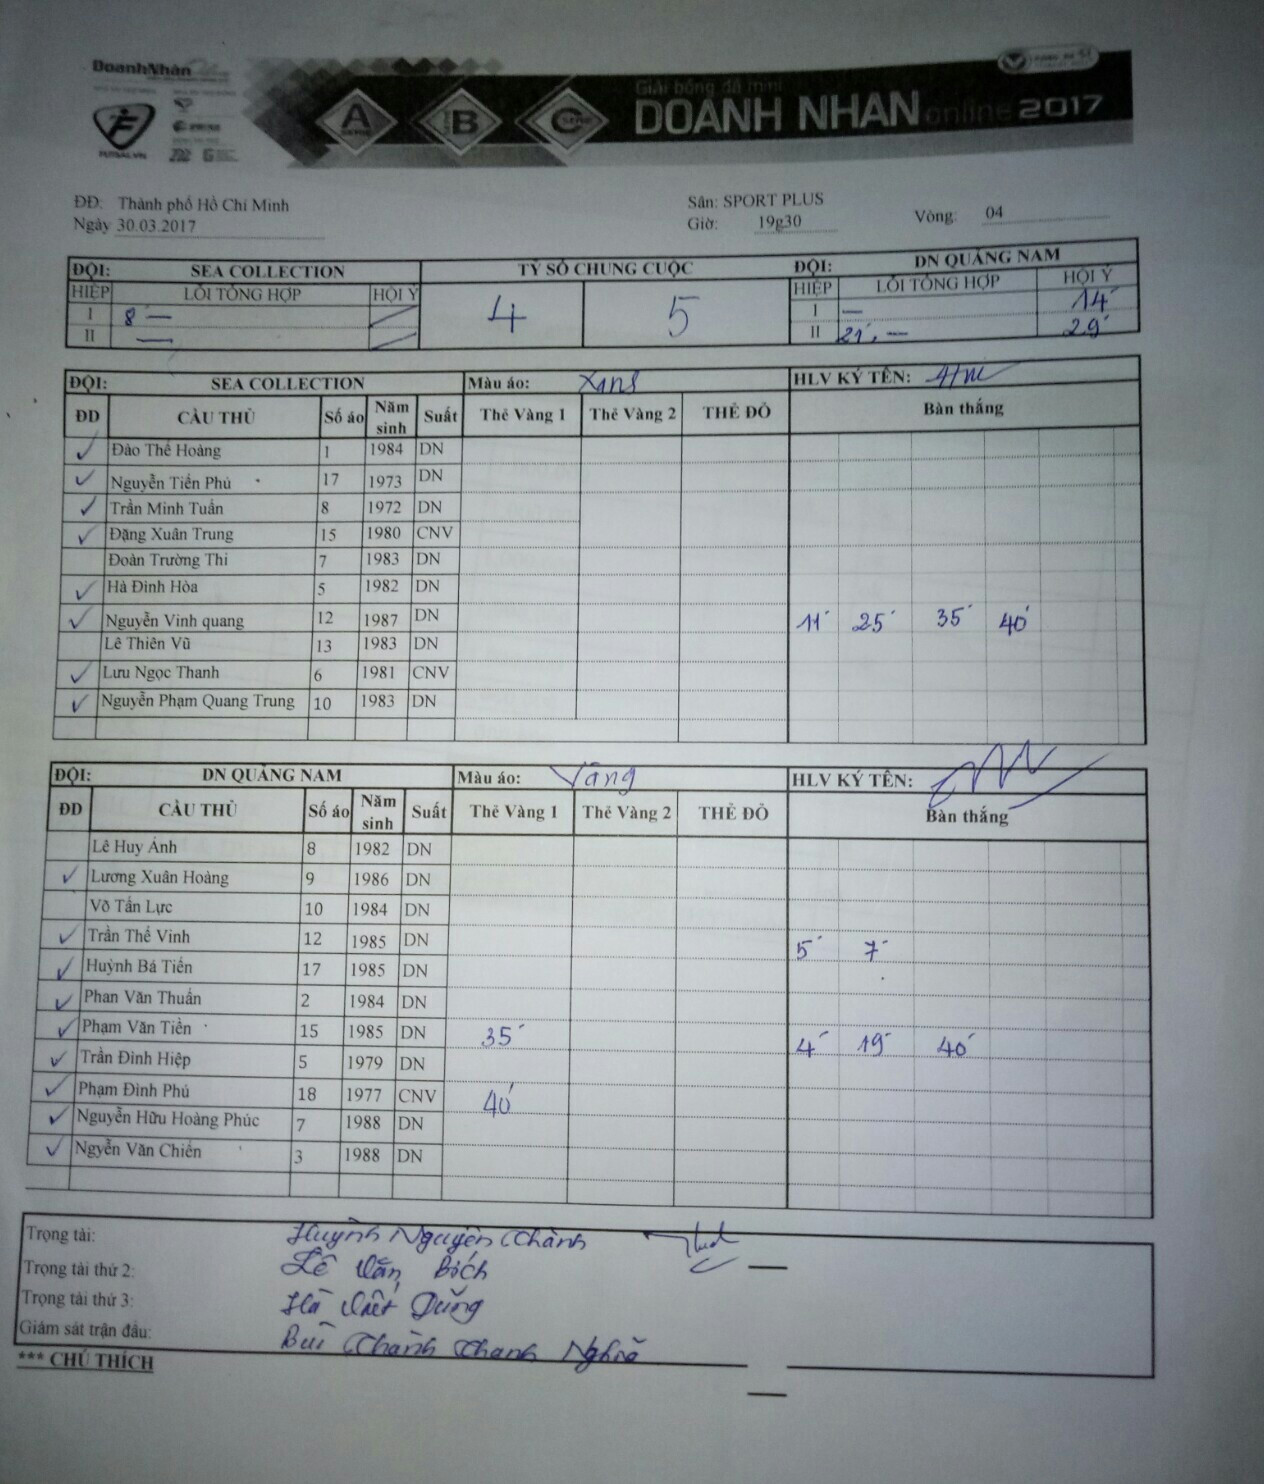 DoanhNhân Online
FUTSAL.VN
A
B
C
SERIE
Giải bóng đá mini
DOANH NHAN online 2017
ĐĐ: Thành phố Hồ Chí Minh
Sân: SPORT PLUS
Ngày 30.03.2017
Giờ: 19g30
Vòng: 04
ĐỘI: SEA COLLECTION TỶ SỐ CHUNG CUỘC ĐỘI: DN QUẢNG NAM
HIỆP LỖI TỔNG HỢP HỘI Ý 4 5 HIỆP LỖI TỔNG HỢP HỘI Ý
I 8 — I — 14´
II — II 21´, — 29´
ĐỘI: SEA COLLECTION Màu áo: Xanh HLV KÝ TÊN:
ĐD CẦU THỦ Số áo Năm sinh Suất Thẻ Vàng 1 Thẻ Vàng 2 THẺ ĐỎ Bàn thắng
✓ Đào Thế Hoàng 1 1984 DN
✓ Nguyễn Tiến Phú 17 1973 DN
✓ Trần Minh Tuấn 8 1972 DN
✓ Đặng Xuân Trung 15 1980 CNV
Đoàn Trường Thi 7 1983 DN
✓ Hà Đình Hòa 5 1982 DN
✓ Nguyễn Vinh quang 12 1987 DN 11´ 25´ 35´ 40´
Lê Thiên Vũ 13 1983 DN
✓ Lưu Ngọc Thanh 6 1981 CNV
✓ Nguyễn Phạm Quang Trung 10 1983 DN
ĐỘI: DN QUẢNG NAM Màu áo: Vàng HLV KÝ TÊN:
ĐD CẦU THỦ Số áo Năm sinh Suất Thẻ Vàng 1 Thẻ Vàng 2 THẺ ĐỎ Bàn thắng
Lê Huy Ánh 8 1982 DN
✓ Lương Xuân Hoàng 9 1986 DN
Võ Tấn Lực 10 1984 DN
✓ Trần Thế Vinh 12 1985 DN 5´ 7´
✓ Huỳnh Bá Tiến 17 1985 DN
✓ Phan Văn Thuấn 2 1984 DN
✓ Phạm Văn Tiền 15 1985 DN 35´ 4´ 19´ 40´
✓ Trần Đình Hiệp 5 1979 DN
✓ Phạm Đình Phú 18 1977 CNV 40´
✓ Nguyễn Hữu Hoàng Phúc 7 1988 DN
✓ Ngyễn Văn Chiến 3 1988 DN
Trọng tài: Huỳnh Nguyên Thành
Trọng tài thứ 2: Lê Văn Bích
Trọng tài thứ 3: Hà Việt Dũng
Giám sát trận đấu: Bùi Thành Thanh Nghĩa
*** CHÚ THÍCH